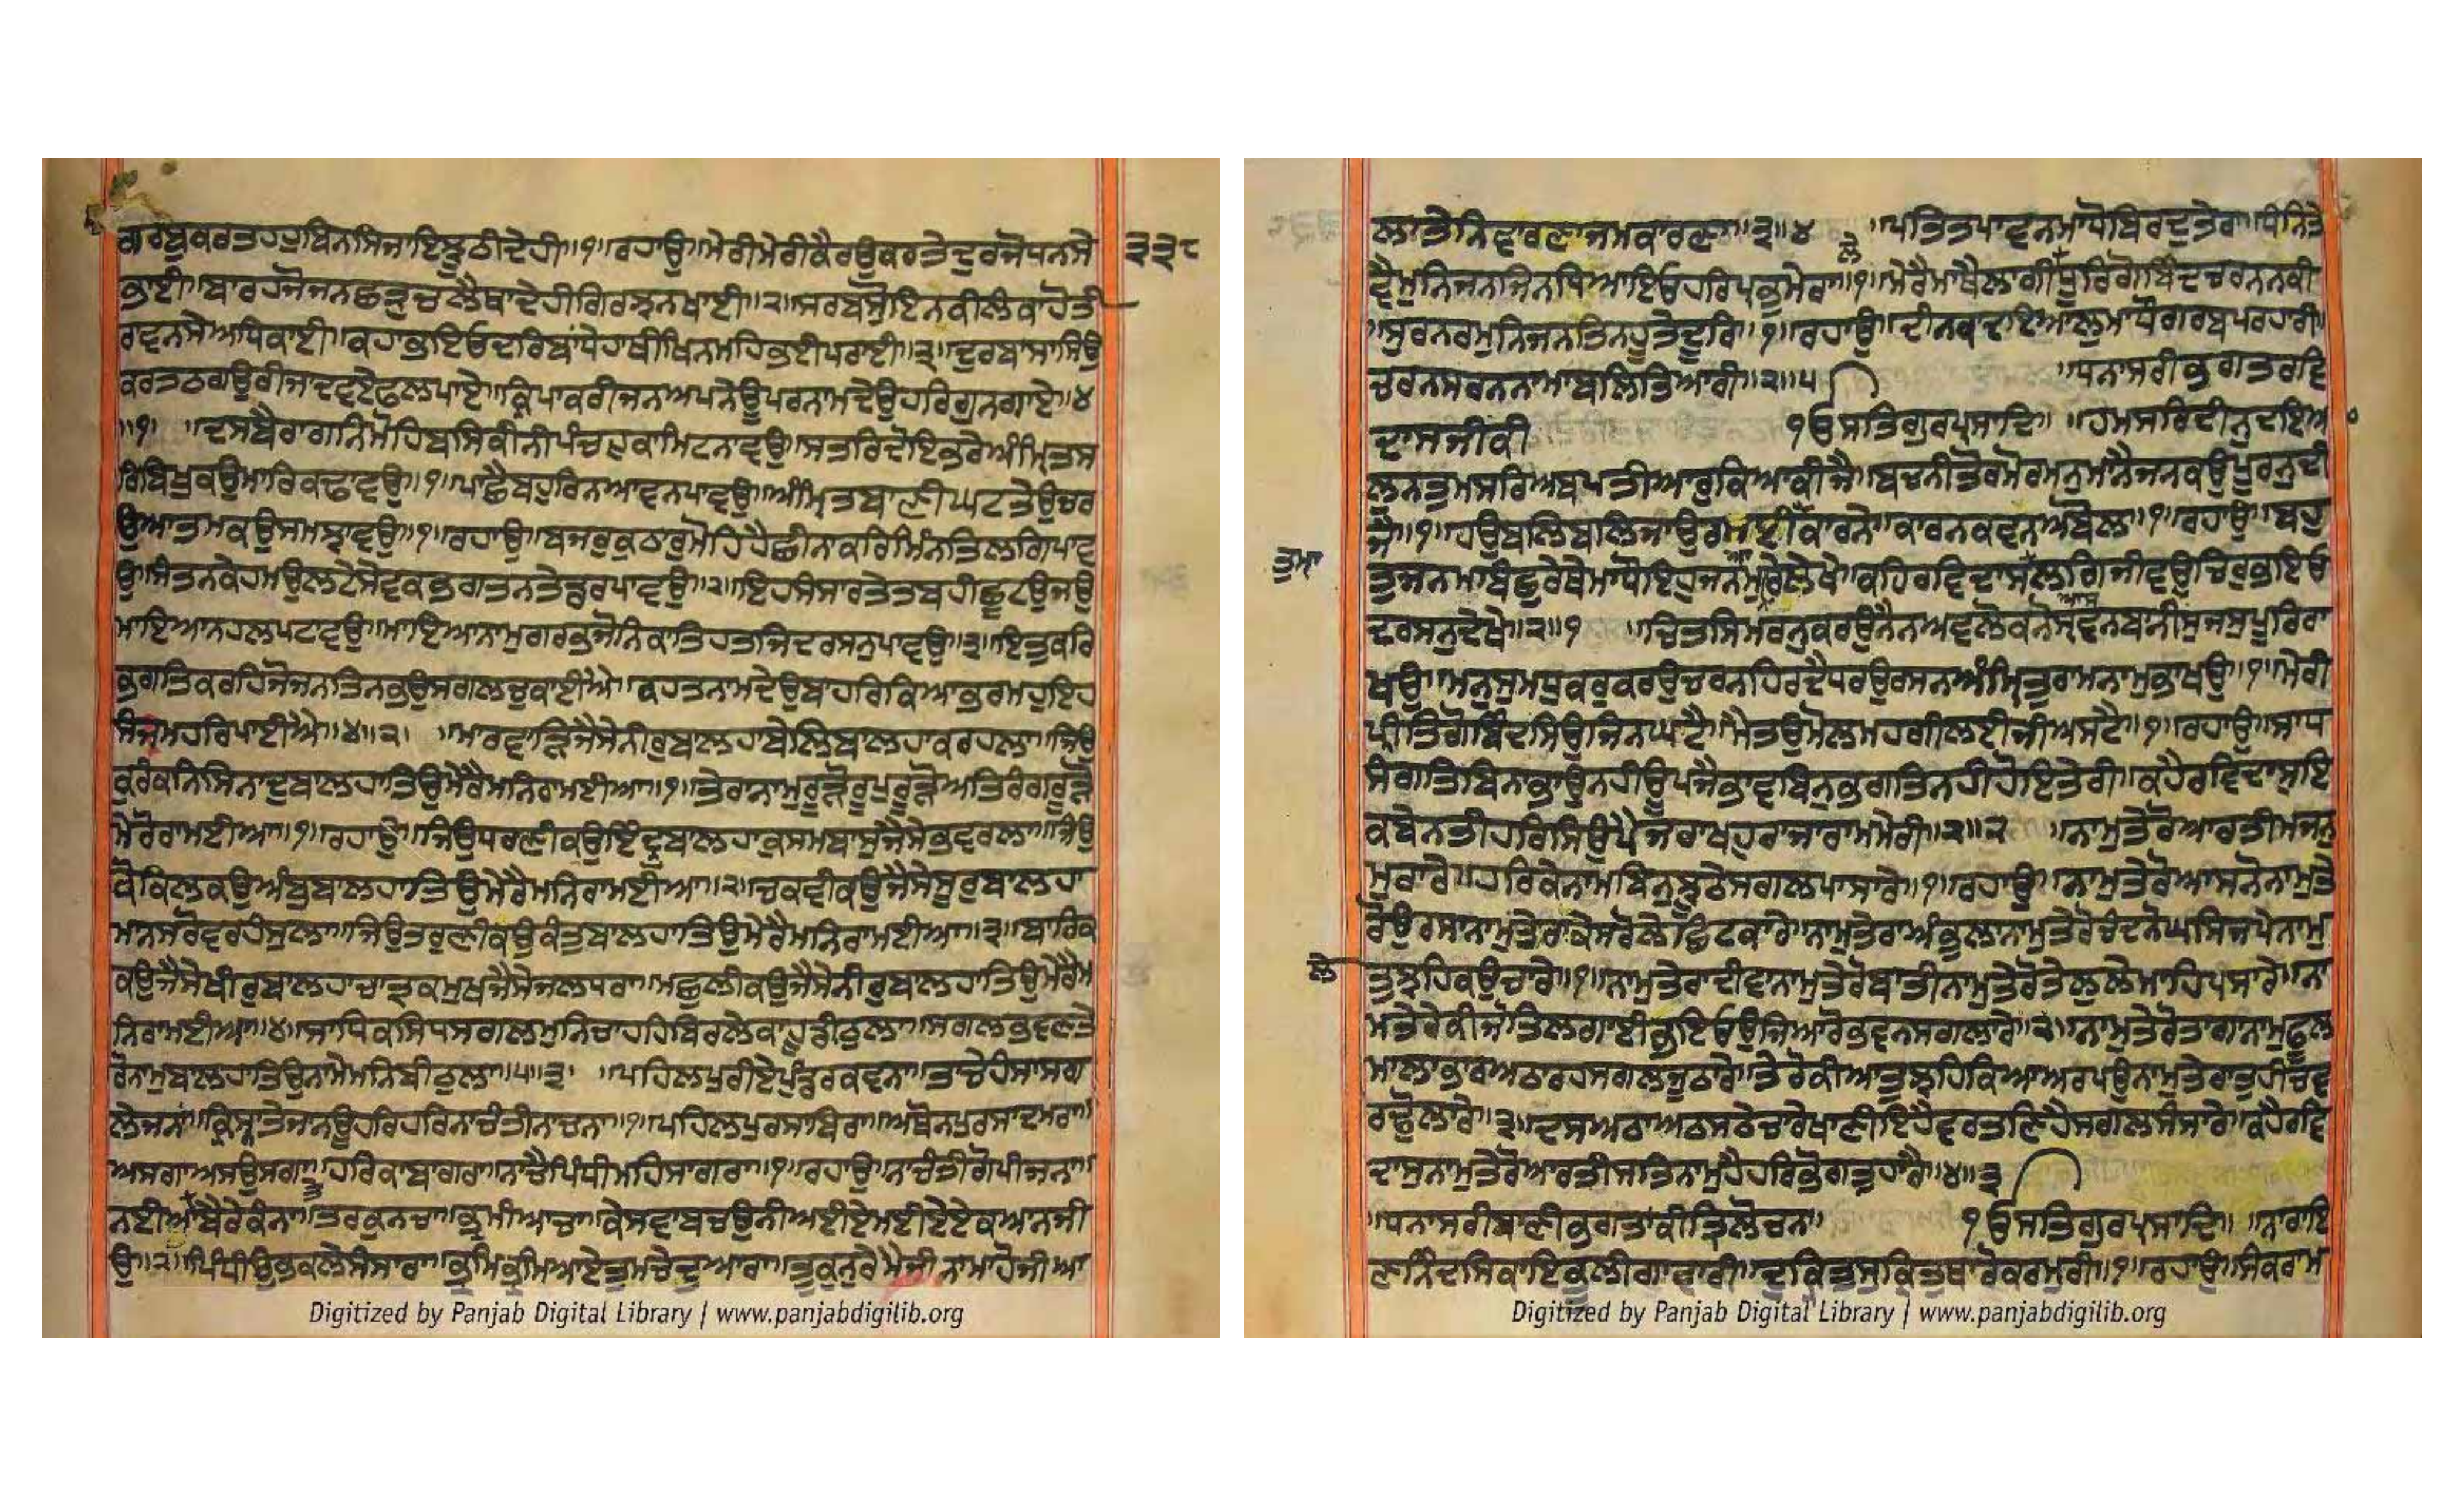 ਗਰਬੁਕਰਤਹਹੁਬਿਨਸਿਜਾਇਝੂਠੀਦੇਹੀ॥੧॥ਰਹਾਉ॥ਮੇਰੀਮੇਰੀਕੈਰਉਕਰਤੇਦੁਰਜੋਧਨਸੇ
੩੩੮
ਭਾਈ॥ਬਾਰਹਜੋਜਨਛਤ੍ਰੁਚਲੈਥਾਦੇਹੀਗਿਰਝਨਖਾਈ॥੨॥ਸਰਬਸੋੁਇਨਕੀਲੰਕਾਹੋਤੀ
ਰਾਵਨਸੇਅਧਿਕਾਈ॥ਕਹਾਭਇਓਦਰਿਬਾਂਧੇਹਾਥੀਖਿਨਮਹਿਭਈਪਰਾਈ॥੩॥ਦੁਰਬਾਸਾਸਿਉ
ਕਰਤਠਗਉਰੀਜਾਦਵਏਫਲਪਾਏ॥ਕ੍ਰਿਪਾਕਰੀਜਨਅਪਨੇਊਪਰਨਾਮਦੇਉਹਰਿਗੁਨਗਾਏ॥੪
॥੧॥ ਦਸਬੈਰਾਗਨਿਮੋਹਿਬਸਿਕੀਨੀਪੰਚਹੁਕਾਮਿਟਨਾਵਉ॥ਸਤਰਿਦੋਇਭਰੇਅੰਮ੍ਰਿਤਸ
ਰਿਬਿਖੁਕਉਮਾਰਿਕਢਾਵਉ॥੧॥ਪਾਛੈਬਹੁਰਿਨਆਵਨਪਾਵਉ॥ਅੰਮ੍ਰਿਤਬਾਣੀਘਟਤੇਉਚਰ
ਉਆਤਮਕਉਸਮਝਾਵਉ॥੧॥ਰਹਾਉ॥ਬਜਰਕੁਠਾਰੁਮੋਹਿਹੈਛੀਨਾਕਰਿਮਿੰਨਤਿਲਗਿਪਾਵ
ਉ॥ਸੰਤਨਕੇਹਮਉਲਟੇਸੇਵਕਭਗਤਨਤੇਡਰਪਾਵਉ॥੨॥ਇਹਸੰਸਾਰਤੇਤਬਹੀਛੂਟਉਜਉ
ਮਾਇਆਨਹਲਪਟਾਵਉ॥ਮਾਇਆਨਾਮੁਗਰਭਜੋਨਿਕਾਤਿਹਤਜਿਦਰਸਨੁਪਾਵਉ॥੩॥ਇਤੁਕਰਿ
ਭਗਤਿਕਰਹਿਜੋਜਨਤਿਨਭਉਸਗਲਚੁਕਾਈਐ॥ਕਹਤਨਾਮਦੇਉਬਾਹਰਿਕਿਆਭਰਮਹੁਇਹ
ਸੰਜਮਹਰਿਪਾਈਐ॥੪॥੨॥ ਮਾਰਵਾੜਿਜੈਸੇਨੀਰੁਬਾਲਹਾਬੇਲਿਬਾਲਹਾਕਰਹਲਾ॥ਜਿਉ
ਕੁਰੰਕਨਿਸਿਨਾਦੁਬਾਲਹਾਤਿਉਮੇਰੈਮਨਿਰਾਮਈਆ॥੧॥ਤੇਰਾਨਾਮੁਰੂੜੋਰੂਪੁਰੂੜੋਅਤਿਰੰਗਰੂੜੋ
ਮੇਰੋਰਾਮਈਆ॥੧॥ਰਹਾਉ॥ਜਿਉਧਰਣੀਕਉਇੰਦ੍ਰੁਬਾਲਹਾਕੁਸਮਬਾਸੁਜੈਸੇਭਵਰਲਾ॥ਜਿਉ
ਕੋਕਿਲਕਉਅੰਬੁਬਾਲਹਾਤਿਉਮੇਰੈਮਨਿਰਾਮਈਆ॥੨॥ਚਕਵੀਕਉਜੈਸੇਸੂਰੁਬਾਲਹਾ
ਮਾਨਸਰੋਵਰਹੰਸੁਲਾ॥ਜਿਉਤਰੁਣੀਕਉਕੰਤੁਬਾਲਹਾਤਿਉਮੇਰੈਮਨਿਰਾਮਈਆ॥੩॥ਬਾਰਿਕ
ਕਉਜੈਸੇਖੀਰੁਬਾਲਹਾਚਾਤ੍ਰਕਮੁਖਜੈਸੇਜਲਧਰਾ॥ਮਛੁਲੀਕਉਜੈਸੇਨੀਰੁਬਾਲਹਾਤਿਉਮੇਰੈਮ
ਨਿਰਾਮਈਆ॥੪॥ਸਾਧਿਕਸਿਧਸਗਲਮੁਨਿਚਾਹਹਿਬਿਰਲੇਕਾਹੂਡੀਠੁਲਾ॥ਸਗਲਭਵਣਤੇ
ਰੋਨਾਮੁਬਾਲਹਾਤਿਉਨਾਮੇਮਨਿਬੀਠੁਲਾ॥੫॥੩॥ ਪਹਿਲਪੁਰੀਏਪੁੰਡਰਕਵਨਾ॥ਤਾਚੇਹੰਸਾਸਗ
ਲੇਜਨਾਂ॥ਕ੍ਰਿਸ੍ਨਾਤੇਜਾਨਊਹਰਿਹਰਿਨਾਚੰਤੀਨਾਚਨਾ॥੧॥ਪਹਿਲਪੁਰਸਾਬਿਰਾ॥ਅਥੋਨਪੁਰਸਾਦਮਰਾ॥
ਅਸਗਾਅਸਉਸਗਾ॥ਹਰਿਕਾਬਾਗਰਾਨਾਚੈਪਿੰਧੀਮਹਿਸਾਗਰਾ॥੧॥ਰਹਾਉ॥ਨਾਚੰਤੀਗੋਪੀਜਨਾ॥
ਨਈਆਬੈਰੇਕੰਨਾ॥ਤਰਕੁਨਚਾ॥ਭ੍ਰਮੀਆਚਾ॥ਕੇਸਵਾਬਚਉਨੀਅਈਏਮਈਏਏਕਆਨਜੀ
ਉ॥੨॥ਪਿੰਧੀਉਭਕਲੇਸੰਸਾਰਾ॥ਭ੍ਰਮਿਭ੍ਰਮਿਆਏਤੁਮਚੇਦੁਆਰਾ॥ਤੂਕੁਨੁਰੇਮੈਜੀਨਾਮਾਹੋਜੀਆ
Digitized by Panjab Digital Library | www.panjabdigilib.org
ਲਾਤੇਨਿਵਾਰਣਾਜਮਕਾਰਣਾ॥੩॥੪ ॥ਪਤਿਤਪਾਵਨਮਾਧੋਬਿਰਦੁਤੇਰਾ॥ਧੰਨਿਤੇ
ਵੈਮੁਨਿਜਨਜਿਨਧਿਆਇਓਹਰਿਪ੍ਰਭੁਮੇਰਾ॥੧॥ਮੇਰੈਮਾਥੈਲਾਗੀਧੂਰਿਗੋਬਿੰਦਚਰਨਨਕੀ
॥ਸੁਰਨਰਮੁਨਿਜਨਤਿਨਹੂਤੇਦੂਰਿ॥੧॥ਰਹਾਉ॥ਦੀਨਕਾਦਇਆਲੁਮਾਧੌਗਰਬਪਰਹਰੀ॥
ਚਰਨਸਰਨਨਾਮਾਬਲਿਤਿਆਰੀ॥੨॥੫ ॥ਧਨਾਸਰੀਭਗਤਰਵਿ
ਦਾਸਜੀਕੀ ੧ਓਸਤਿਗੁਰਪ੍ਰਸਾਦਿ॥ ॥ਹਮਸਰਿਦੀਨੁਦਇਆ
ਲਨਤੁਮਸਰਿਅਬਪਤੀਆਰੁਕਿਆਕੀਜੈ॥ਬਚਨੀਤੋਰਮੋਰਮਨੁਮਾਨੈਜਨਕਉਪੂਰਨੁਦੀ
ਜੈ॥੧॥ਹਉਬਲਿਬਲਿਜਾਉਰਮਈਆਕਾਰਨੇ॥ਕਾਰਨਕਵਨਅਬੋਲ॥੧॥ਰਹਾਉ॥ਬਹੁ
ਤੁਮਾ
ਤਜਨਮਬਿਛੁਰੇਥੇਮਾਧੋਇਹੁਜਨਮੁਰੇਲੇਖੇ॥ਕਹਿਰਵਿਦਾਸਆਸਲਗਿਜੀਵਉਚਿਰਭਇਓ
ਦਰਸਨੁਦੇਖੇ॥੨॥੧ ॥ਚਿਤਸਿਮਰਨੁਕਰਉਨੈਨਅਵਲੋਕਨੋਸ੍ਰਵਨਬਾਨੀਸੁਜਸੁਪੂਰਿਰਾ
ਖਉ॥ਮਨੁਸੁਮਧੁਕਰੁਕਰਉਚਰਨਹਿਰਦੈਧਰਉਰਸਨਅੰਮ੍ਰਿਤੁਰਾਮਨਾਮੁਭਾਖਉ॥੧॥ਮੇਰੀ
ਪ੍ਰੀਤਿਗੋਬਿੰਦਸਿਉਜਿਨਘਟੈ॥ਮੈਤਉਮੋਲਮਹਗੀਲਈਜੀਅਸਟੈ॥੧॥ਰਹਾਉ॥ਸਾਧ
ਸੰਗਤਿਬਿਨਾਭਾਉਨਹੀਊਪਜੈਭਾਵਬਿਨੁਭਗਤਿਨਹੀਹੋਇਤੇਰੀ॥ਕਹੈਰਵਿਦਾਸੁਇ
ਕਬੇਨਤੀਹਰਿਸਿਉਪੈਜਰਾਖਹੁਰਾਜਾਰਾਮਮੇਰੀ॥੨॥੨ ॥ਨਾਮੁਤੇਰੋਆਰਤੀਮਜਨੁ
ਮੁਰਾਰੇ॥ਹਰਿਕੇਨਾਮਬਿਨੁਝੂਠੇਸਗਲਪਾਸਾਰੇ॥੧॥ਰਹਾਉ॥ਨਾਮੁਤੇਰੋਆਸਨੋਨਾਮੁਤੇ
ਰੋਉਰਸਾਨਾਮੁਤੇਰਾਕੇਸਰੋਲੇਛਿਟਕਾਰੇ॥ਨਾਮੁਤੇਰਾਅੰਭੁਲਾਨਾਮੁਤੇਰੋਚੰਦਨੋਘਸਿਜਪੇਨਾਮੁ
ਲੇ
ਤੁਝਹਿਕਉਚਾਰੇ॥੧॥ਨਾਮੁਤੇਰਾਦੀਵਾਨਾਮੁਤੇਰੋਬਾਤੀਨਾਮੁਤੇਰੋਤੇਲੁਲੇਮਾਹਿਪਸਾਰੇ॥ਨਾ
ਮਤੇਰੇਕੀਜੋਤਿਲਗਾਈਭਇਓਉਜਿਆਰੋਭਵਨਸਗਲਾਰੇ॥੨॥ਨਾਮੁਤੇਰੋਤਾਗਾਨਾਮੁਫੂਲ
ਮਾਲਾਭਾਰਅਠਾਰਹਸਗਲਜੂਠਾਰੇ॥ਤੇਰੋਕੀਆਤੁਝਹਿਕਿਆਅਰਪਉਨਾਮੁਤੇਰਾਤੁਹੀਚਵ
ਰਢੋਲਾਰੇ॥੩॥ਦਸਅਠਾਅਠਸਠੇਚਾਰੇਖਾਣੀਇਹੈਵਰਤਣਿਹੈਸਗਲਸੰਸਾਰੇ॥ਕਹੈਰਵਿ
ਦਾਸੁਨਾਮੁਤੇਰੋਆਰਤੀਸਤਿਨਾਮੁਹੈਹਰਿਭੋਗਤੁਹਾਰੈ॥੪॥੩
॥ਧਨਾਸਰੀਬਾਣੀਭਗਤਾਕੀਤ੍ਰਿਲੋਚਨ॥ ੧ਓਸਤਿਗੁਰਪ੍ਰਸਾਦਿ॥ ॥ਨਾਰਾਇ
ਣਨਿੰਦਸਿਕਾਇਭੂਲੀਗਵਾਰੀ॥ਦੁਕ੍ਰਿਤੁਸੁਕ੍ਰਿਤੁਥਾਰੋਕਰਮੁਰੀ॥੧॥ਰਹਾਉ॥ਸੰਕਰਾਮ
Digitized by Panjab Digital Library | www.panjabdigilib.org